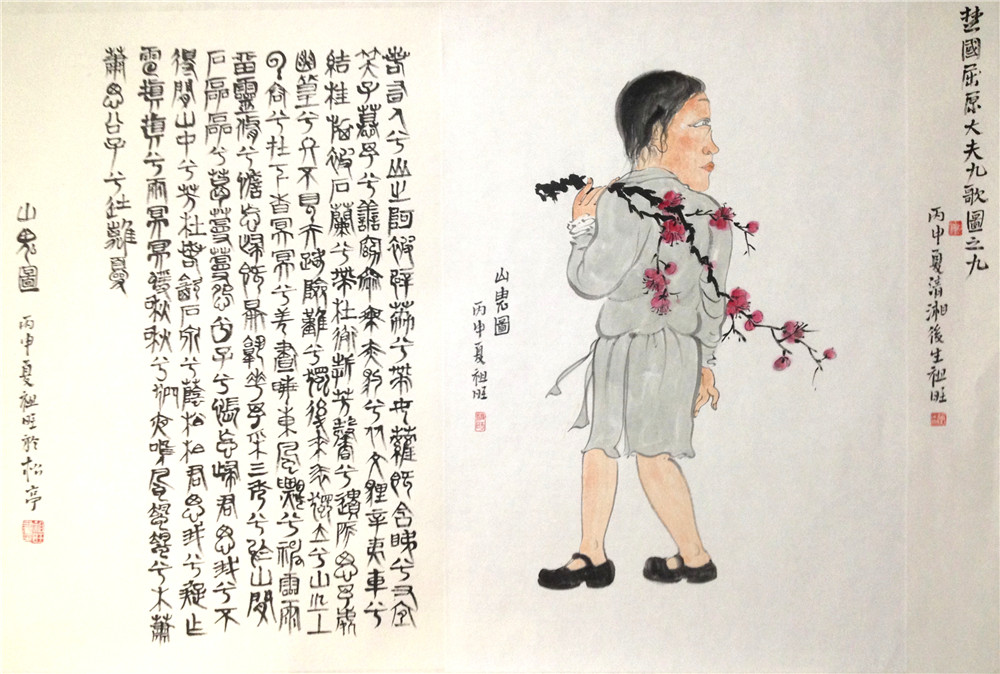 楚國屈原大夫九歌圖之九
丙申夏清湘後生祖旺
山鬼圖
丙申夏祖旺
若有人兮山之阿被薜荔兮帶女蘿既含睇兮又宜
笑子慕予兮善窈窕乘赤豹兮從文狸辛夷車兮
結桂旗被石蘭兮帶杜衡折芳馨兮遺所思予處
幽篁兮終不見天路險難兮獨後來表獨立兮山之上
雲容兮在下杳冥冥兮羌晝晦東風飄兮神靈雨
留靈脩兮憺忘歸歲晏孰華予采三秀兮於山間
石磊磊兮葛蔓蔓怨公子兮悵忘歸君思我兮不
得閒山中兮芳杜若飲石泉兮蔭松柏君思我兮疑作
雷填填兮雨冥冥猨啾啾兮狖夜鳴風颯颯兮木蕭
蕭思公子兮徒離憂
山鬼圖
丙申夏祖旺於松亭